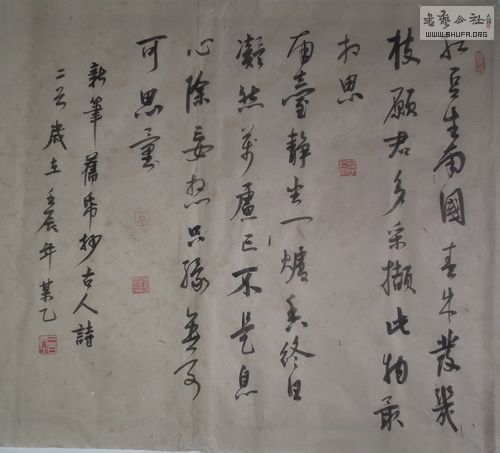 書藝公社
WWW.SHUFA.ORG
红豆生南國春来發幾
枝願君多采擷此物最
相思
南臺靜坐一爐香終日
凝然萬慮亡不是息
心除妄想只緣無事
可思量
新筆舊紙抄古人詩
歲在壬辰年某乙